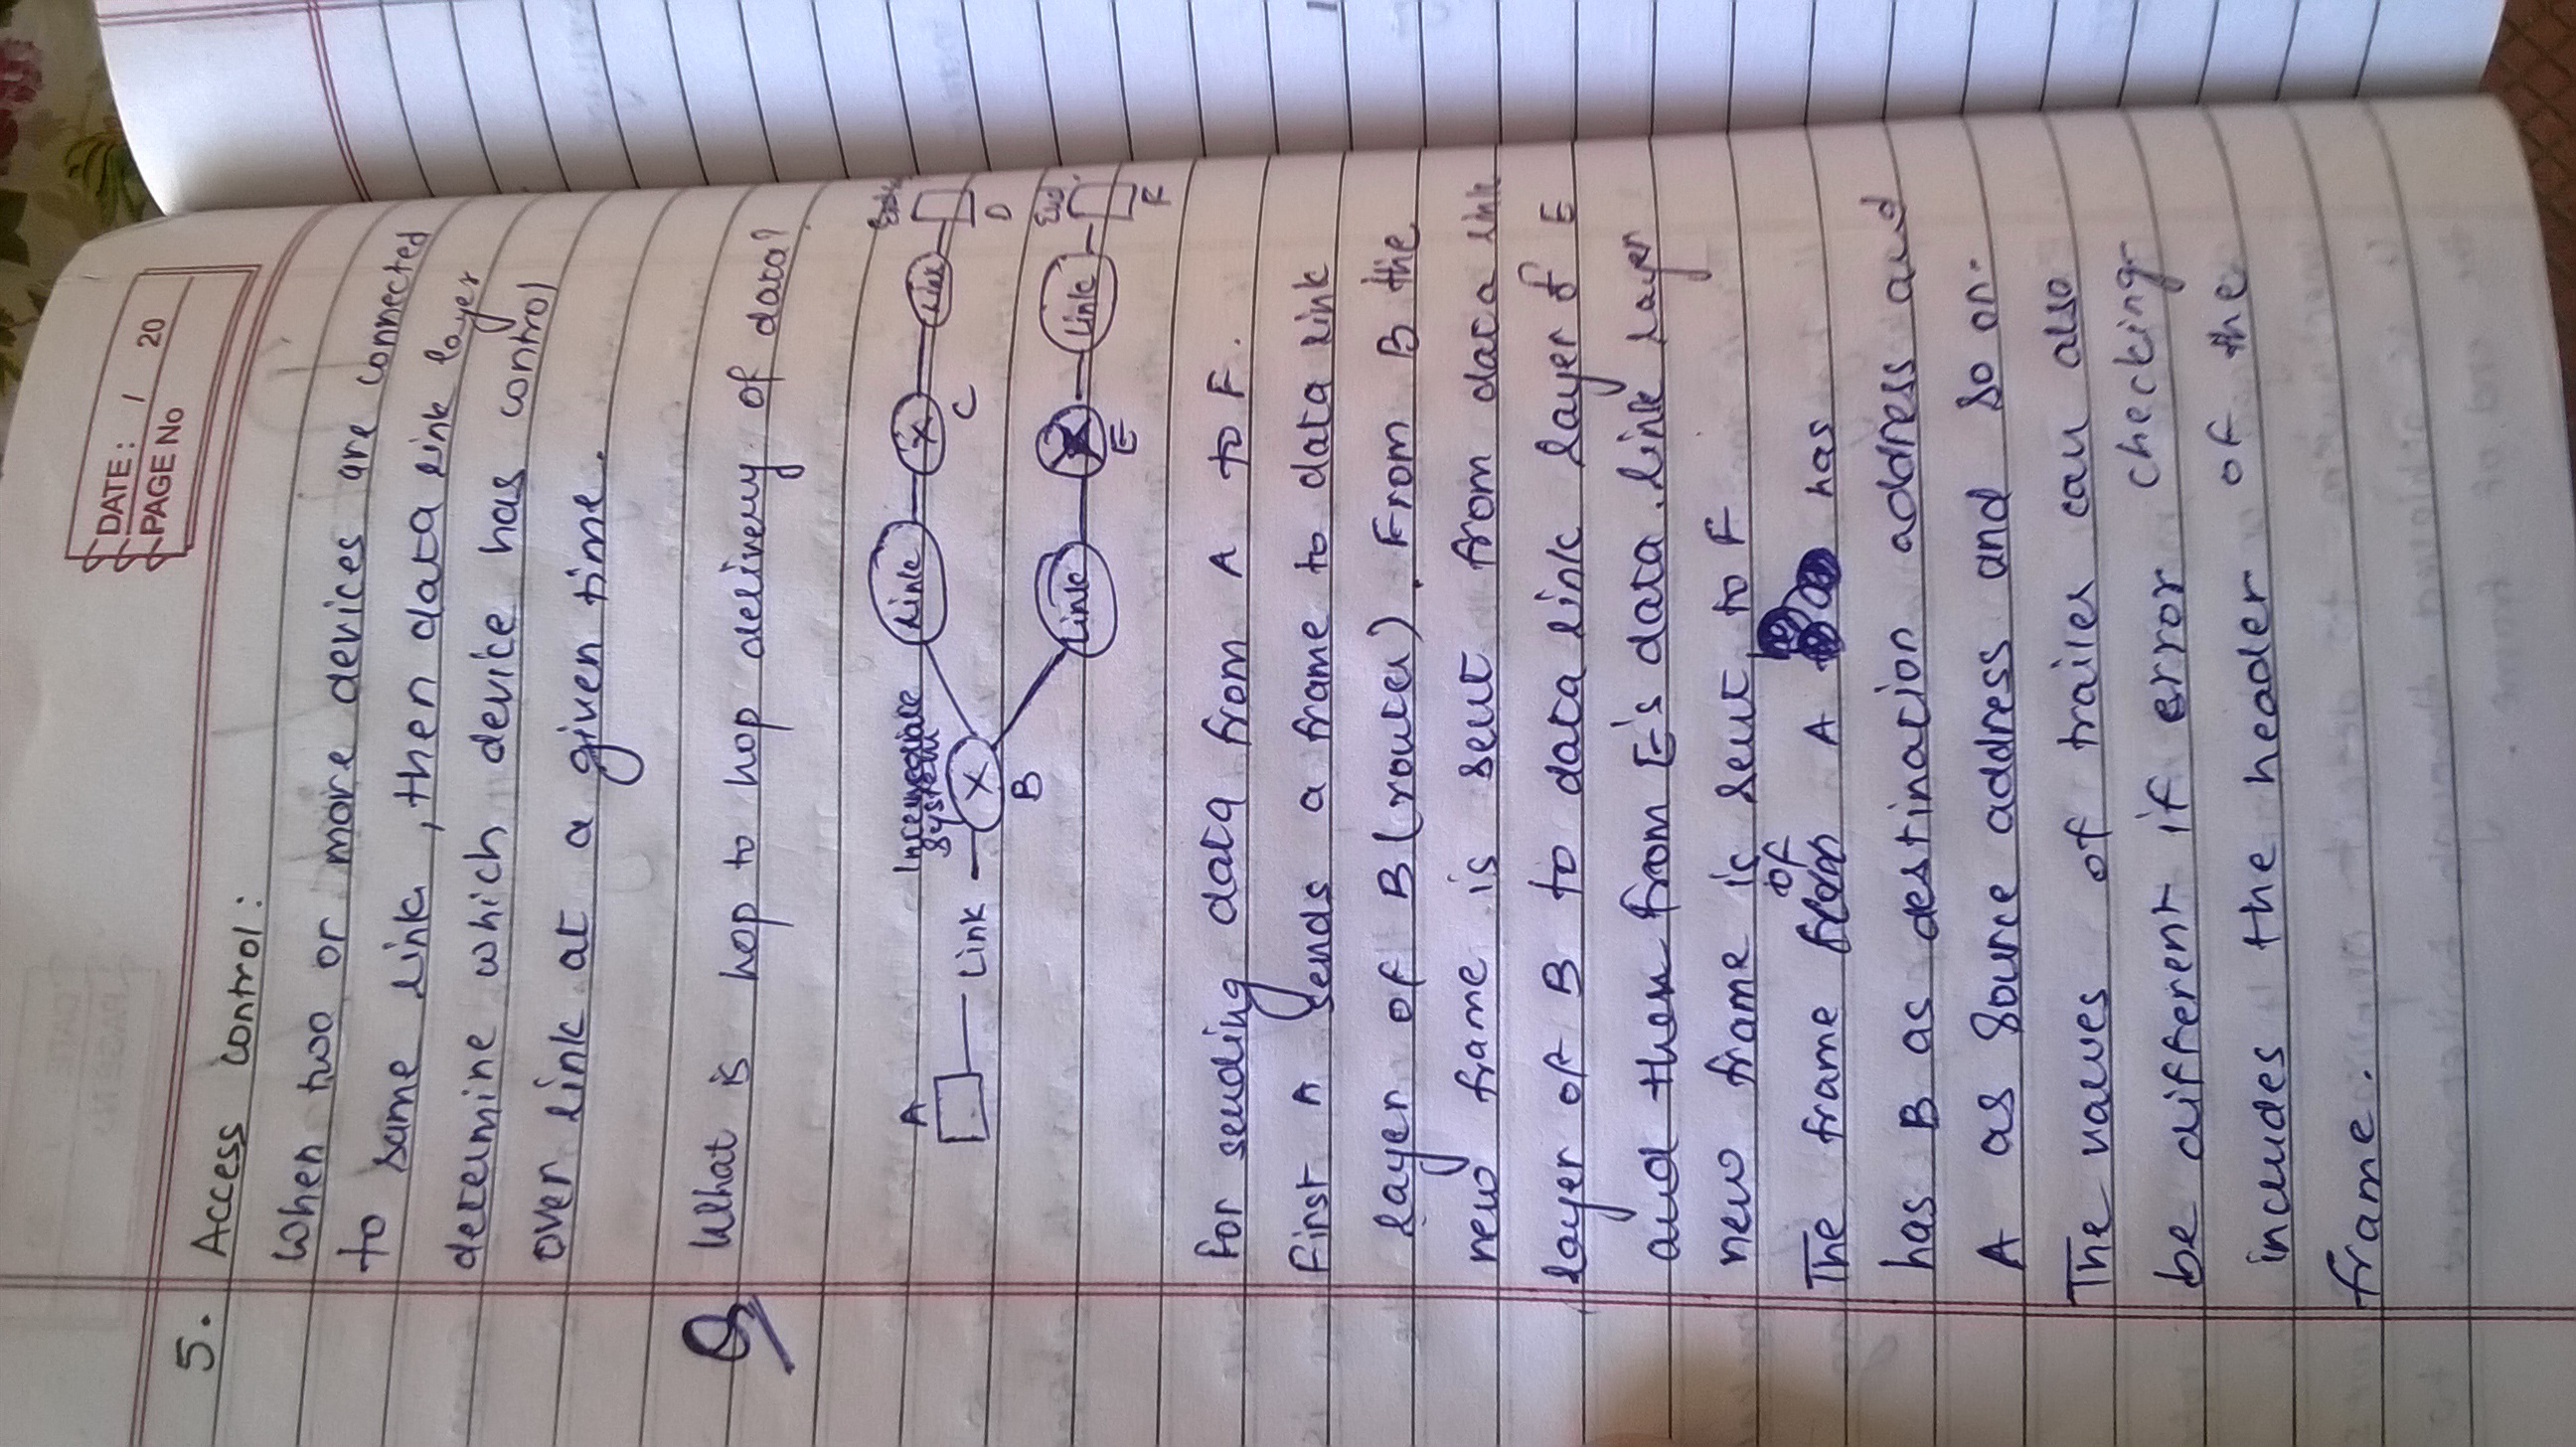 DATE: / 20
PAGE No
5. Access control:
When two or more devices are connected
to same link, then data link layer
determine which device has control
over link at a given time.
Q What is hop to hop delivery of data?
A
Intermediate
System
Link
X
B
Link
X
C
Link
D
Link
E
Link
End
F
For sending data from A to F.
First A sends a frame to data link
layer of B (router). From B the
new frame is sent from data link
layer of B to data link layer of E
and then from E's data link layer
new frame is sent to F
of
The frame A has
has B as destination address and
A as source address and so on.
The values of trailer can also
be different if error checking
includes the header of the
frame.